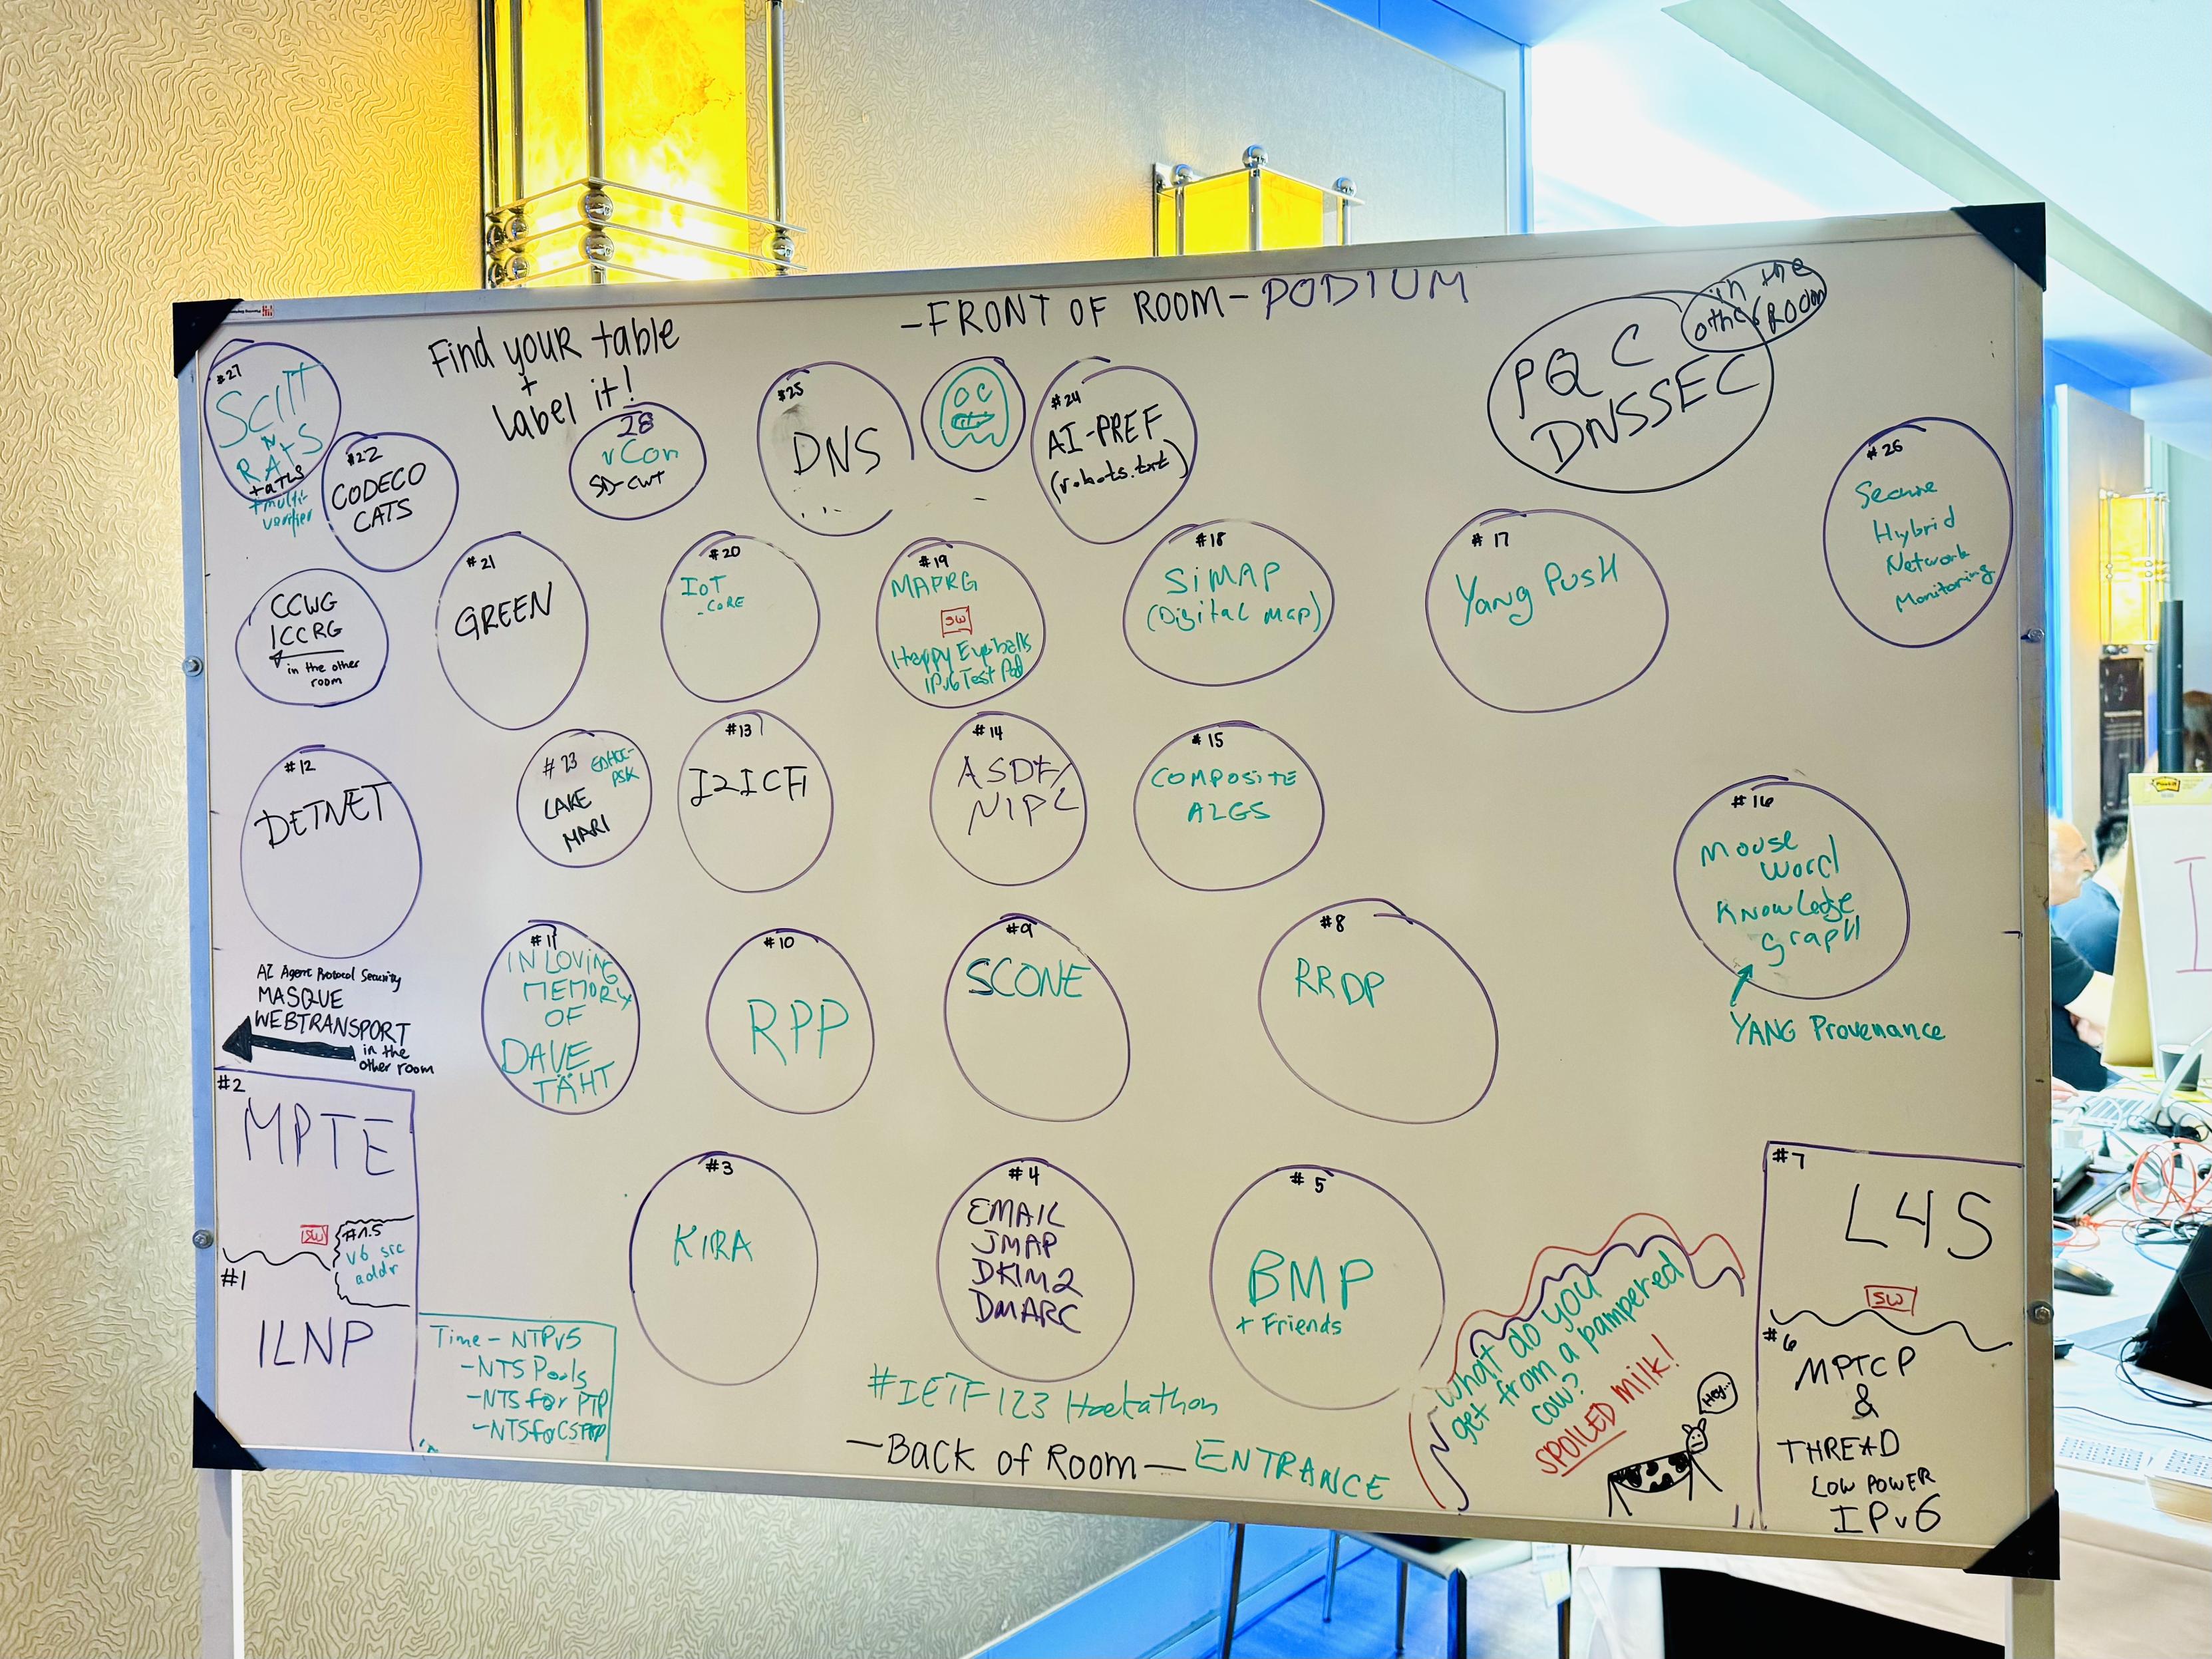 -FRONT OF ROOM- PODIUM
Find your table
+
label it!
#27
SCITT
N
RATS
+aTLS
+multi-
verifier
#22
CODECO
CATS
28
vCon
SD-CWT
#25
DNS
...
#24
AI-PREF
(robots.txt)
PQC
DNSSEC
in the
other room
#26
Secure
Hybrid
Network
Monitoring
CCWG
ICCRG
in the other
room
#21
GREEN
#20
IoT
-CoRE
#19
MAPRG
SW
Happy Eyeballs
IPv6 Test Pod
#18
SiMAP
(Digital map)
#17
Yang PusH
#12
DETNET
#23
EDHOC-
PSK
LAKE
MARI
#13
I2ICF
#14
ASDF/
NIPC
#15
COMPOSiTE
ALGS
#16
Mouse
World
Knowledge
graph
YANG Provenance
AI Agent Protocol Security
MASQUE
WEBTRANSPORT
in the
other room
#11
IN LOVING
MEMORY
OF
DAVE
TÄHT
#10
RPP
#9
SCONE
#8
RRDP
#2
MPTE
SW
#1.5
v6 src
addr
#1
ILNP
Time - NTPv5
-NTS Pools
-NTS for PTP
-NTS for CSPTP
#3
KIRA
#4
EMAIL
JMAP
DKIM2
DMARC
#5
BMP
+ Friends
What do you
get from a pampered
cow?
SPOILED milk!
Hey...
#7
L4S
SW
#6
MPTCP
&
THREAD
LOW POWER
IPv6
#IETF123 Hackathon
-Back of Room- ENTRANCE